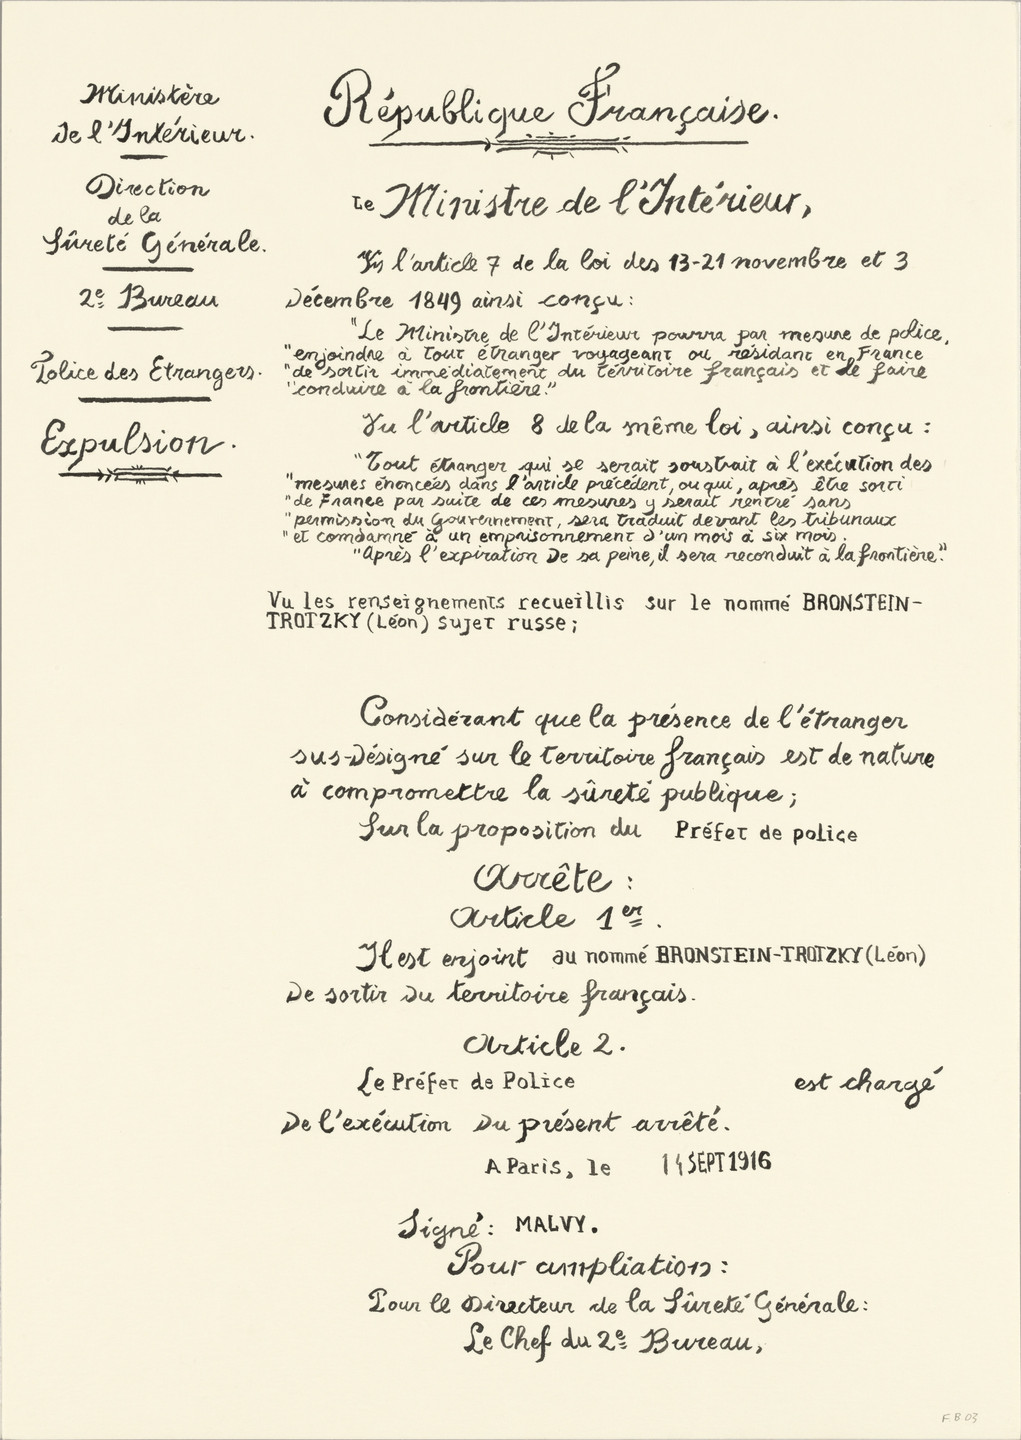 Ministère
de l'Intérieur.
Direction
de la
Sûreté Générale.
2e Bureau
Police des Etrangers.
Expulsion.
République Française.
Le Ministre de l'Intérieur,
Vu l'article 7 de la loi des 13-21 novembre et 3
décembre 1849 ainsi conçu :
"Le Ministre de l'Intérieur pourra par mesure de police,
"enjoindre à tout étranger voyageant ou résidant en France
"de sortir immédiatement du territoire français et le faire
"conduire à la frontière."
Vu l'article 8 de la même loi, ainsi conçu :
"Tout étranger qui se serait soustrait à l'exécution des
"mesures énoncées dans l'article précédent, ou qui, après être sorti
"de France par suite de ces mesures y serait rentré sans
"permission du Gouvernement, sera traduit devant les tribunaux
"et comdamné à un emprisonnement d'un mois à six mois.
"Après l'expiration de sa peine, il sera reconduit à la frontière."
Vu les renseignements recueillis sur le nommé BRONSTEIN-
TROTZKY (Léon) sujet russe;
Considérant que la présence de l'étranger
sus-désigné sur le territoire français est de nature
à compromettre la sûreté publique;
Sur la proposition du Préfet de police
Arrête :
Article 1er.
Il est enjoint au nommé BRONSTEIN-TROTZKY (Léon)
de sortir du territoire français.
Article 2.
Le Préfet de Police est chargé
de l'exécution du présent arrêté.
A Paris, le 14 SEPT 1916
Signé : MALVY.
Pour ampliation :
Pour le Directeur de la Sûreté Générale :
Le Chef du 2e Bureau,
F.B.03